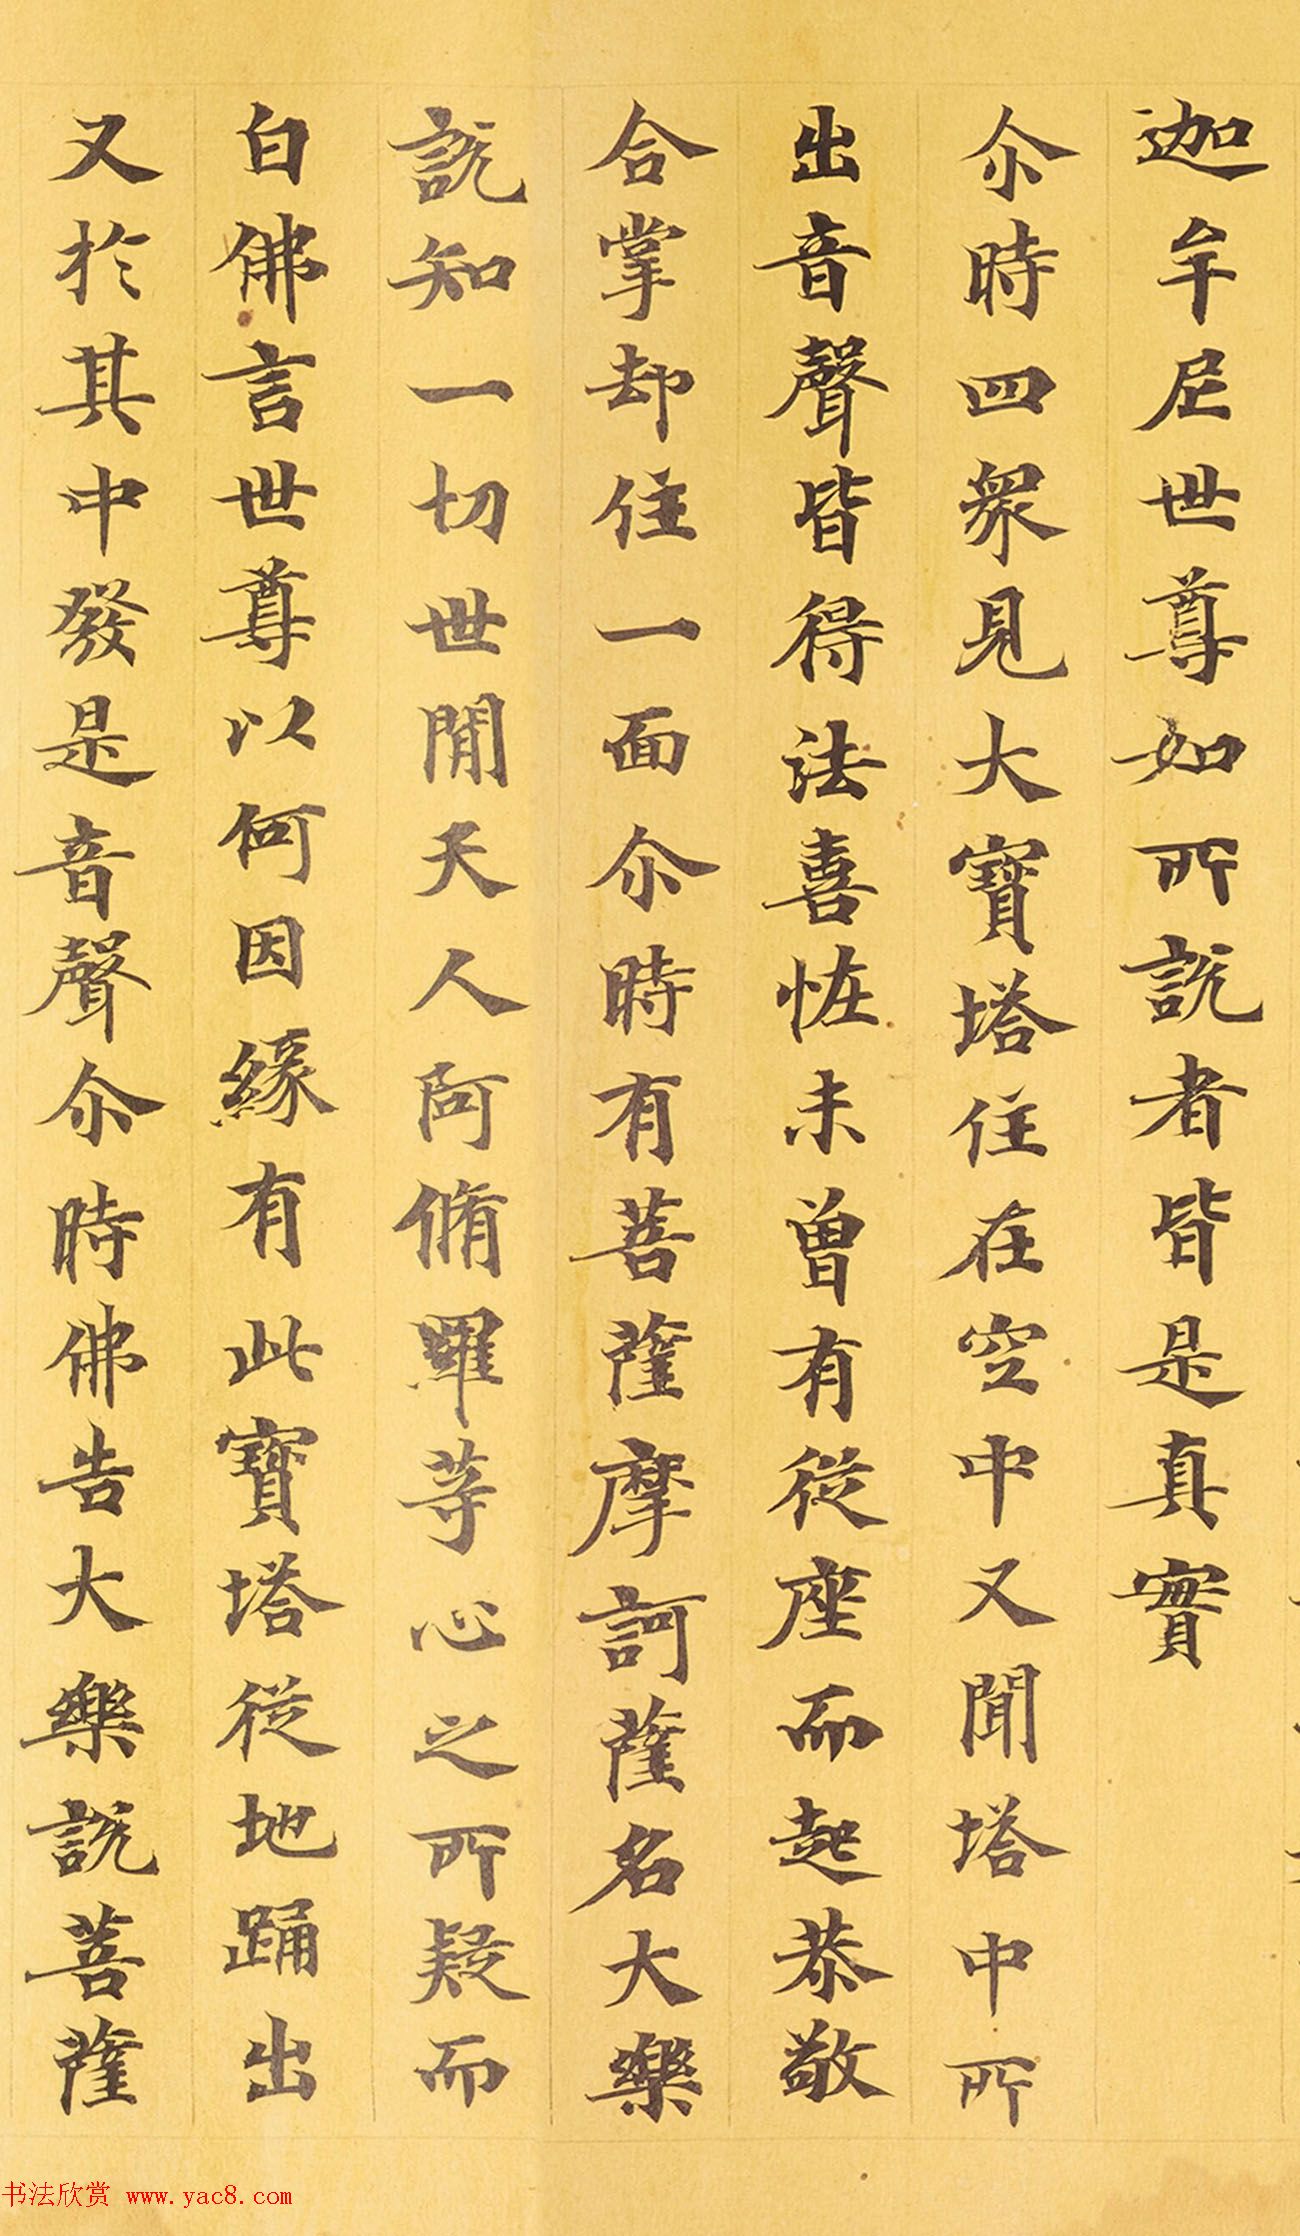 迦牟尼世尊如所說者皆是真實
尒時四眾見大寶塔住在空中又聞塔中所
出音聲皆得法喜恠未曾有從座而起恭敬
合掌却住一面尒時有菩薩摩訶薩名大樂
說知一切世間天人阿脩羅等心之所疑而
白佛言世尊以何因緣有此寶塔從地踊出
又於其中發是音聲尒時佛告大樂說菩薩
书法欣赏 www.yac8.com